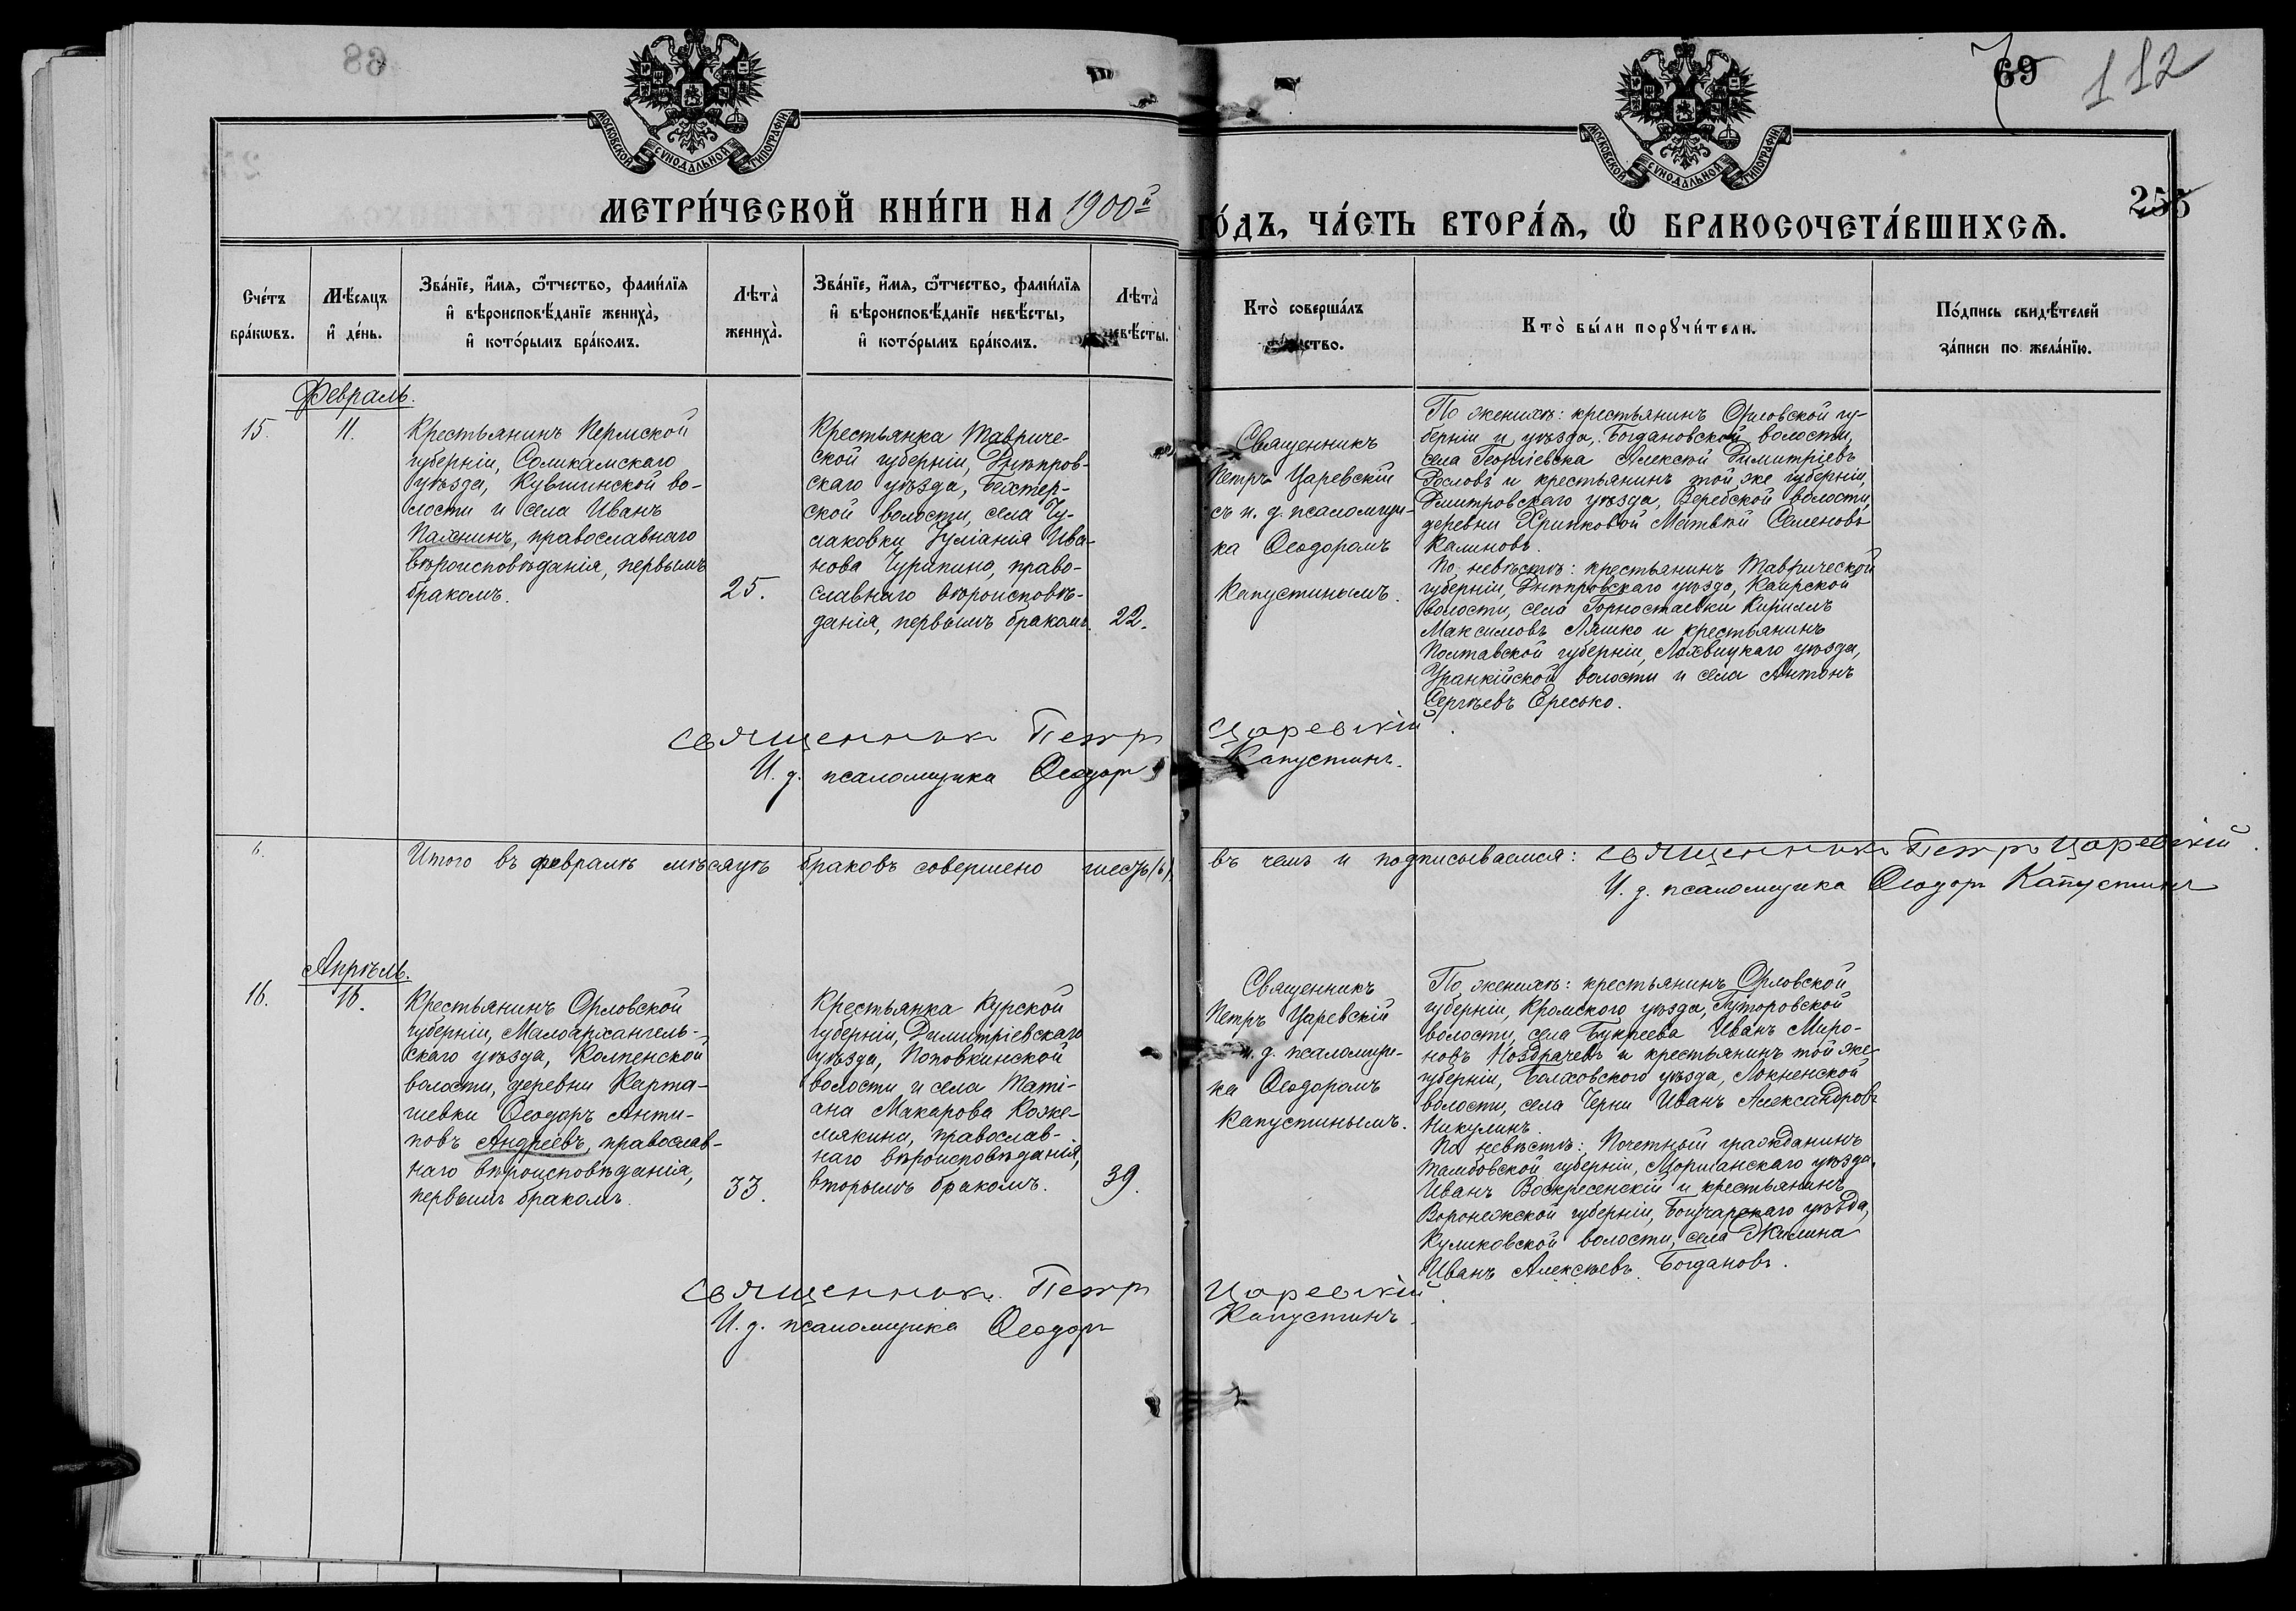 69
112
МОСКОВСКОЙ СУНОДАЛЬНОЙ ТИПОГРАФІИ
МОСКОВСКОЙ СУНОДАЛЬНОЙ ТИПОГРАФІИ
МЕТРИ́ЧЕСКОЙ КНИ́ГИ НА 1900й
ГО́ДЪ, ЧА́СТЬ ВТОРА́Ѧ, Ѽ БРАКОСОЧЕТА́ВШИХСѦ.
255
Сче́тъ
бра́кѡвъ.
Мѣ́сяцъ
и҆ де́нь.
Зва́нїе, и҆́мѧ, ѻ҆́тчество, фами́лїѧ
и҆ вѣроисповѣ́данїе жениха̀,
и҆ кото́рымъ бра́комъ.
Лѣта̀
жениха̀.
Зва́нїе, и҆́мѧ, ѻ҆́тчество, фами́лїѧ
и҆ вѣроисповѣ́данїе невѣ́сты,
и҆ кото́рымъ бра́комъ.
Лѣта̀
невѣ́сты.
Кто̀ соверша́лъ
Кто̀ бы́ли порꙋчи́тели.
По́дпись свидѣ́телей
за́писи по жела́нїю.
Февраль.
15.
11.
Крестьянинъ Пермской
губерніи, Соликамскаго
уѣзда, Кувшинской во-
лости и села Иванъ
Пахнинъ, православнаго
вѣроисповѣданія, первымъ
бракомъ.
25.
Крестьянка Тавриче-
ской губерніи, Днѣпров-
скаго уѣзда, Бехтер-
ской волости, села Чу-
лаковки Іуліанія Ива-
нова Чурипина, право-
славнаго вѣроисповѣ-
данія, первымъ бракомъ.
22.
Священникъ
Петръ Царевскій
съ и. д. псаломщи-
ка Ѳеодоромъ
Капустинымъ.
По женихѣ: крестьянинъ Орловской гу-
берніи и уѣзда, Богдановской волости,
села Георгіевска Алексѣй Димитріевъ
и крестьянинъ той же губерніи,
Дмитровскаго уѣзда, Веребской волости,
деревни Хрипковой Матвѣй Семеновъ
Калиновъ.
По невѣстѣ: крестьянинъ Таврической
губерніи, Днѣпровскаго уѣзда, Каирской
волости, села Горностаевки Кириллъ
Максимовъ Ляшко и крестьянинъ
Полтавской губерніи, Лохвицкаго уѣзда,
волости и села Антонъ
Сергѣевъ Ересько.
Священникъ Петръ Царевскій
И. д. псаломщика Ѳеодоръ Капустинъ.
6.
Итого въ февралѣ мѣсяцѣ браковъ совершено шесть (6), въ чемъ и подписываемся: Священникъ Петръ Царевскій.
И. д. псаломщика Ѳеодоръ Капустинъ
Апрѣль.
16.
16.
Крестьянинъ Орловской
губерніи, Малоархангель-
скаго уѣзда, Колпенской
волости, деревни Карта-
шевки Ѳеодоръ Анти-
повъ Андреевъ, православ-
наго вѣроисповѣданія,
первымъ бракомъ.
33.
Крестьянка Курской
губерніи, Димитріевскаго
уѣзда, Поповкинской
волости и села Таті-
ана Макарова Коже-
мякина, православ-
наго вѣроисповѣданія,
вторымъ бракомъ.
39.
Священникъ
Петръ Царевскій
и. д. псаломщи-
ка Ѳеодоромъ
Капустинымъ.
По женихѣ: крестьянинъ Орловской
губерніи, Кромского уѣзда, Гуторовской
волости, села Букреева Иванъ Миро-
новъ Ноздрачевъ и крестьянинъ той же
губерніи, Болховского уѣзда, Локненской
волости, села Черни Иванъ Александровъ
Никулинъ.
По невѣстѣ: Почетный гражданинъ
Тамбовской губерніи, Моршанскаго уѣзда,
Иванъ Воскресенскій и крестьянинъ
Воронежской губерніи, Богучарскаго уѣзда,
Куликовской волости, села Жилина
Иванъ Алексѣевъ Богдановъ.
Священникъ Петръ Царевскій.
И. д. псаломщика Ѳеодоръ Капустинъ.